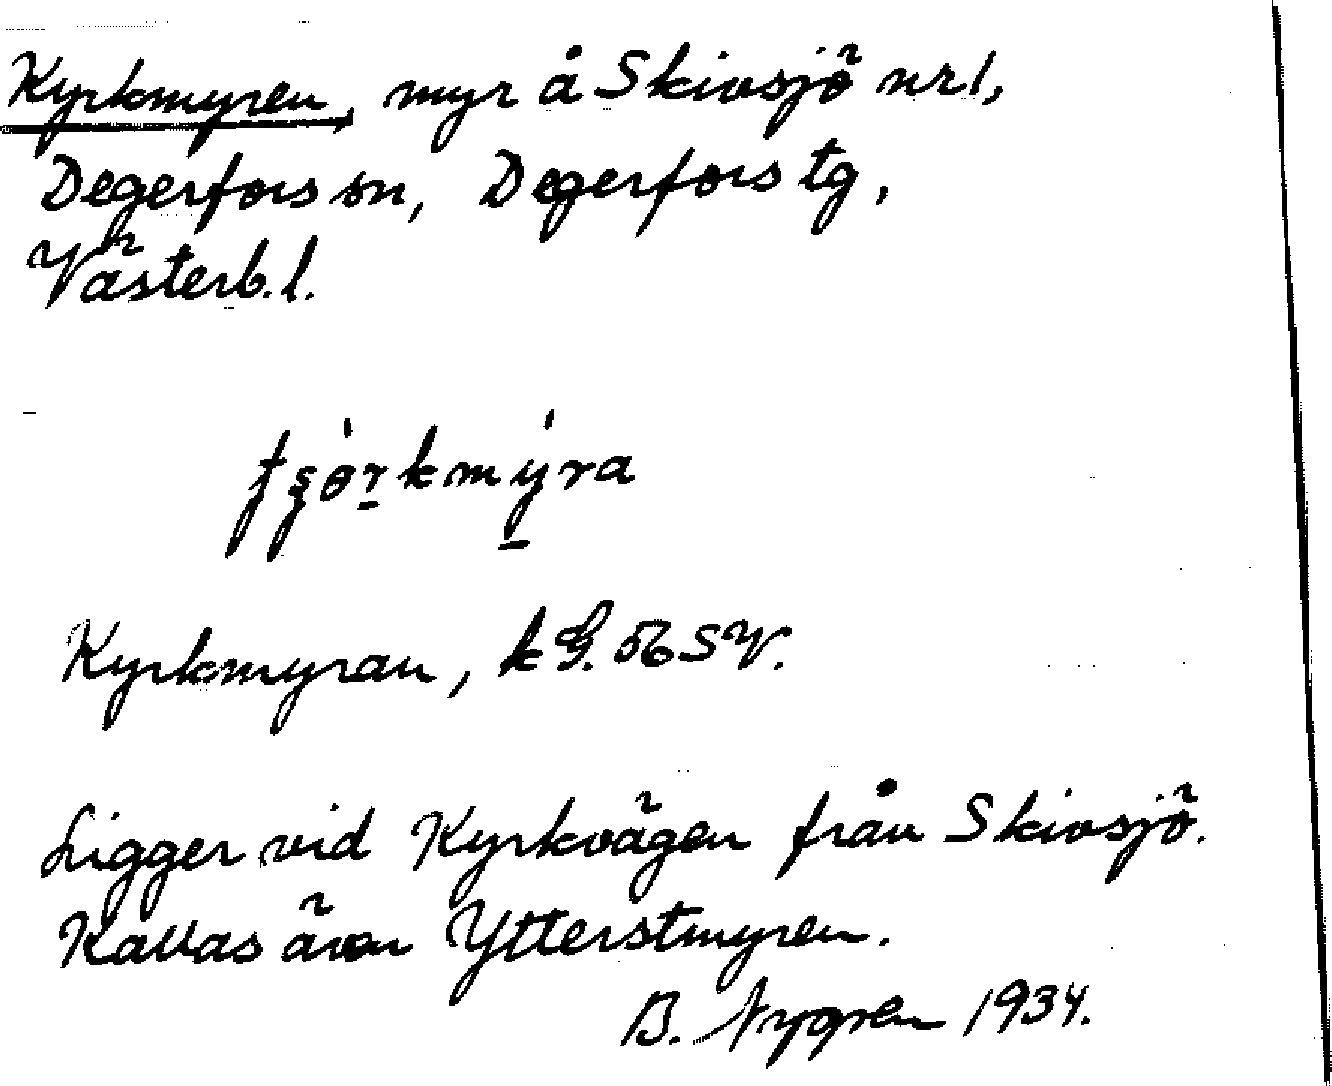 Kyrkmyren, myr å Skivsjö nr 1,
Degerfors sn, Degerfors tg,
Västerb. l.
Kyrkmyran, k G. 56 SV.
Ligger vid Kyrkvägen från Skivsjö.
Kallas även Ytterstmyren.
B. Nygren 1934.